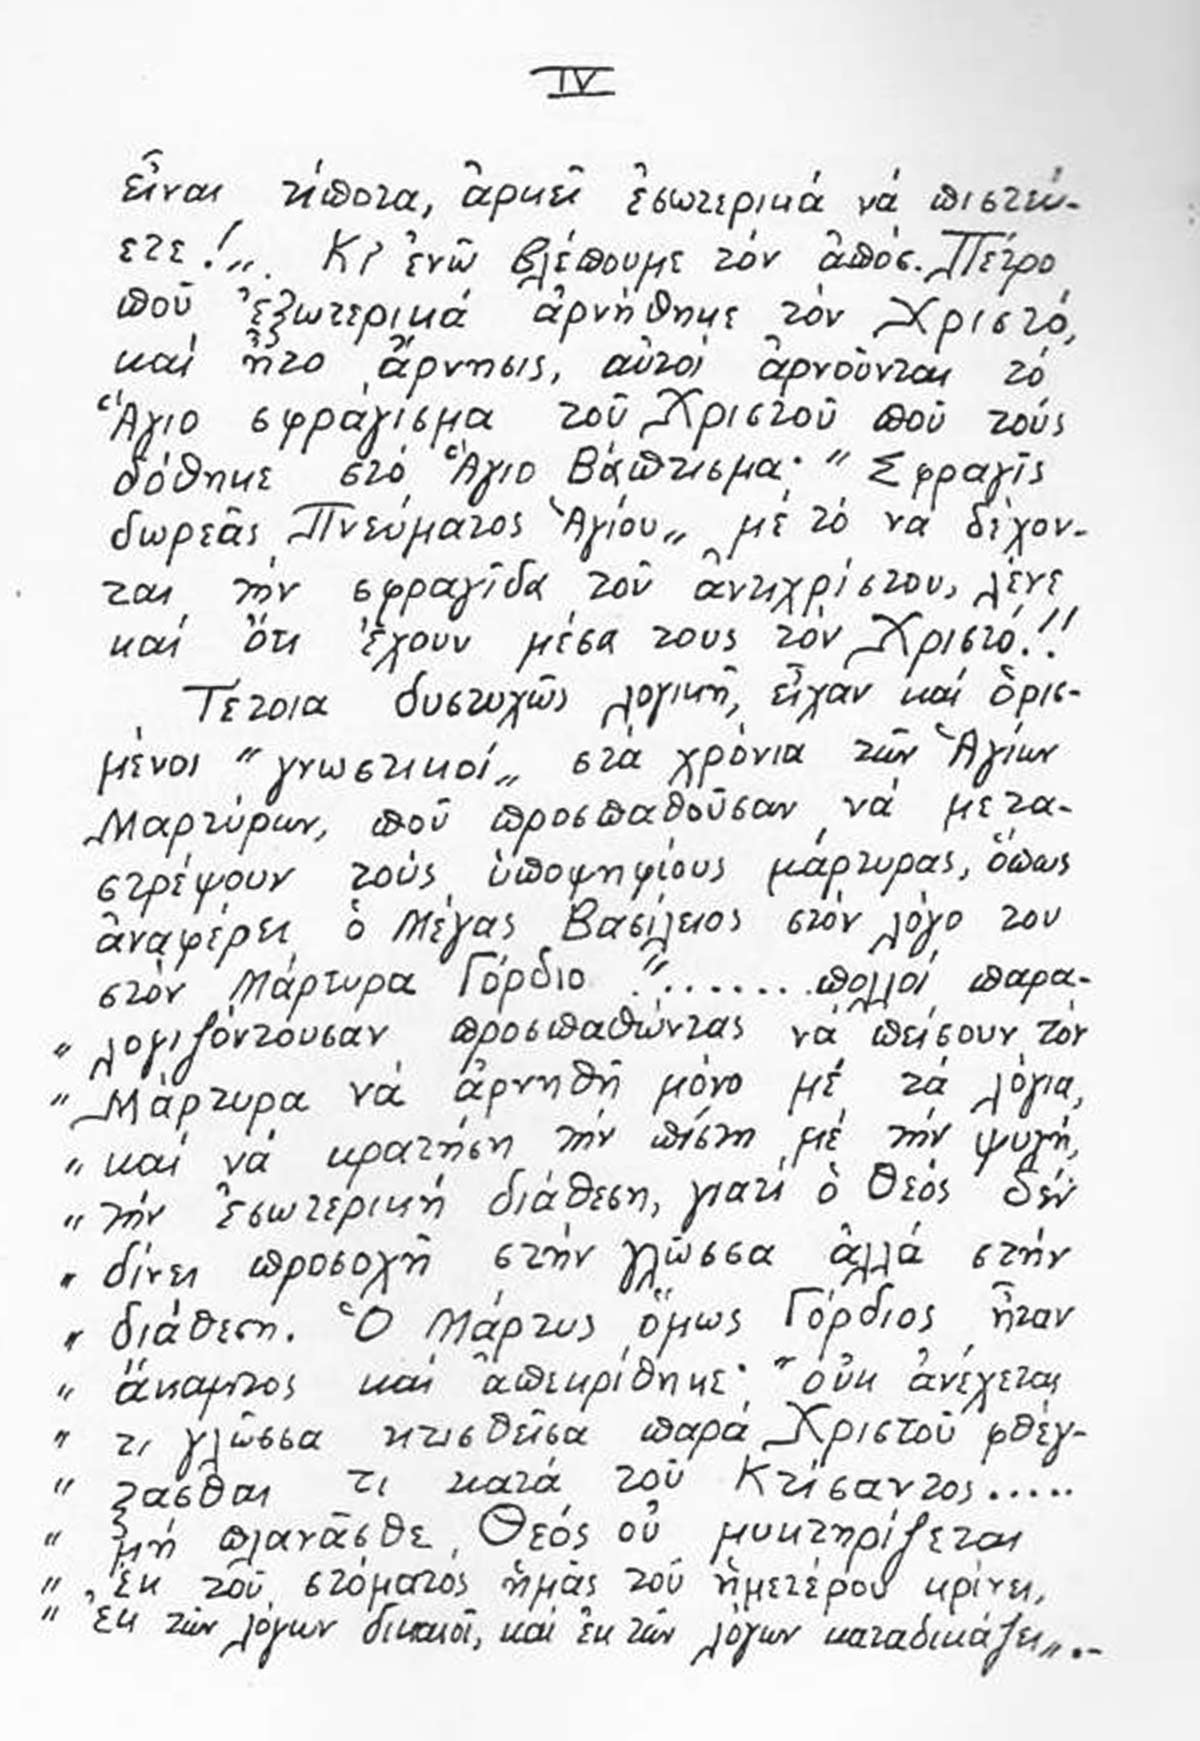 IV
εἶναι τίποτα, ἀρκεῖ ἐσωτερικά νά πιστεύ-
ετε!„. Κι ἐνῶ βλέπουμε τόν ἀπόσ. Πέτρο
ποῦ ἐξωτερικά ἀρνήθηκε τόν Χριστό,
καί ἦτο ἄρνησις, αὐτοί ἀρνοῦνται τό
Ἅγιο σφράγισμα τοῦ Χριστοῦ ποῦ τούς
δόθηκε στό Ἅγιο Βάπτισμα· “Σφραγῖς
δωρεᾶς Πνεύματος Ἁγίου„ μέ τό νά δέχον-
ται τήν σφραγῖδα τοῦ ἀντιχρίστου, λένε
καί ὅτι ἔχουν μέσα τους τόν Χριστό!!
Τέτοια δυστυχῶς λογική, εἶχαν καί ὁρισ-
μένοι “γνωστικοί„ στά χρόνια τῶν Ἁγίων
Μαρτύρων, ποῦ προσπαθοῦσαν νά μετα-
στρέψουν τούς ὑποψηφίους μάρτυρας, ὅπως
ἀναφέρει ὁ Μέγας Βασίλειος στόν λόγο του
στόν Μάρτυρα Γόρδιο “........πολλοί παρα-
“ λογιζόντουσαν προσπαθώντας νά πείσουν τόν
“ Μάρτυρα νά ἀρνηθῆ μόνο μέ τά λόγια,
“ καί νά κρατήση τήν πίστη μέ τήν ψυχή,
“ τήν ἐσωτερική διάθεση, γιατί ὁ Θεός δέν
“ δίνει προσοχή στήν γλῶσσα ἀλλά στήν
“ διάθεση. Ὁ Μάρτυς ὅμως Γόρδιος ἦταν
“ ἄκαμπτος καί ἀπεκρίθηκε· “οὐκ ἀνέχεται
“ τι γλῶσσα κτισθεῖσα παρά Χριστοῦ φθέγ-
“ ξασθαι τι κατά τοῦ Κτίσαντος.....
“ μή πλανᾶσθε, Θεός οὐ μυκτηρίζεται
“ ἐκ τοῦ στόματος ἡμᾶς τοῦ ἡμετέρου κρίνει,
“ ἐκ τῶν λόγων δικαιοῖ, καί ἐκ τῶν λόγων καταδικάζει„.-